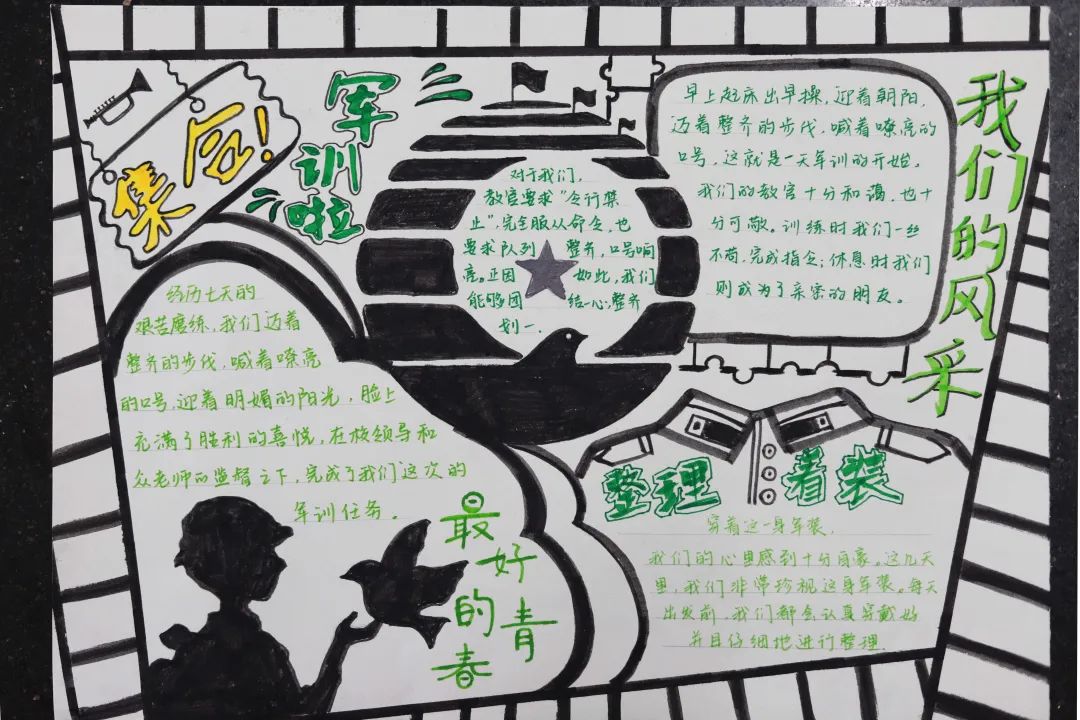 集合!
军训啦
对于我们,
教官要求“令行禁
止”,完全服从命令,也
要求队列整齐,口号响
亮。正因如此,我们
能够团结一心,整齐
划一.
早上起床出早操,迎着朝阳,
迈着整齐的步伐,喊着嘹亮的
口号,这就是一天军训的开始。
我们的教官十分和蔼,也十
分可敬。训练时我们一丝
不苟,完成指令;休息时我们
则成为了亲密的朋友。
我们的风采
经历七天的
艰苦磨练,我们迈着
整齐的步伐,喊着嘹亮
的口号,迎着明媚的阳光,脸上
充满了胜利的喜悦,在校领导和
众老师的监督之下,完成了我们这次的
军训任务。
最好的青春
整理着装
穿着这一身军装,
我们的心里感到十分自豪。这几天
里,我们非常珍视这身军装。每天
出发前,我们都会认真穿戴好
并且仔细地进行整理.